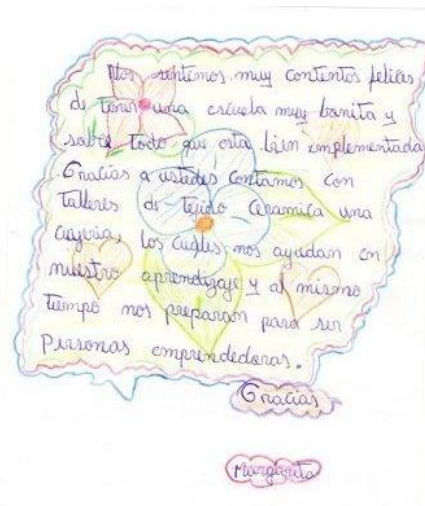 Nos sentimos muy contentos felices
de tener una escuela muy bonita y
sobre todo que esta bien implementada
Gracias a ustedes contamos con
talleres de tejido Ceramica una
cuyeria, los cuales nos ayudan en
nuestro aprendizaje y al mismo
tiempo nos preparan para ser
Personas emprendedoras.
Gracias
Margarita